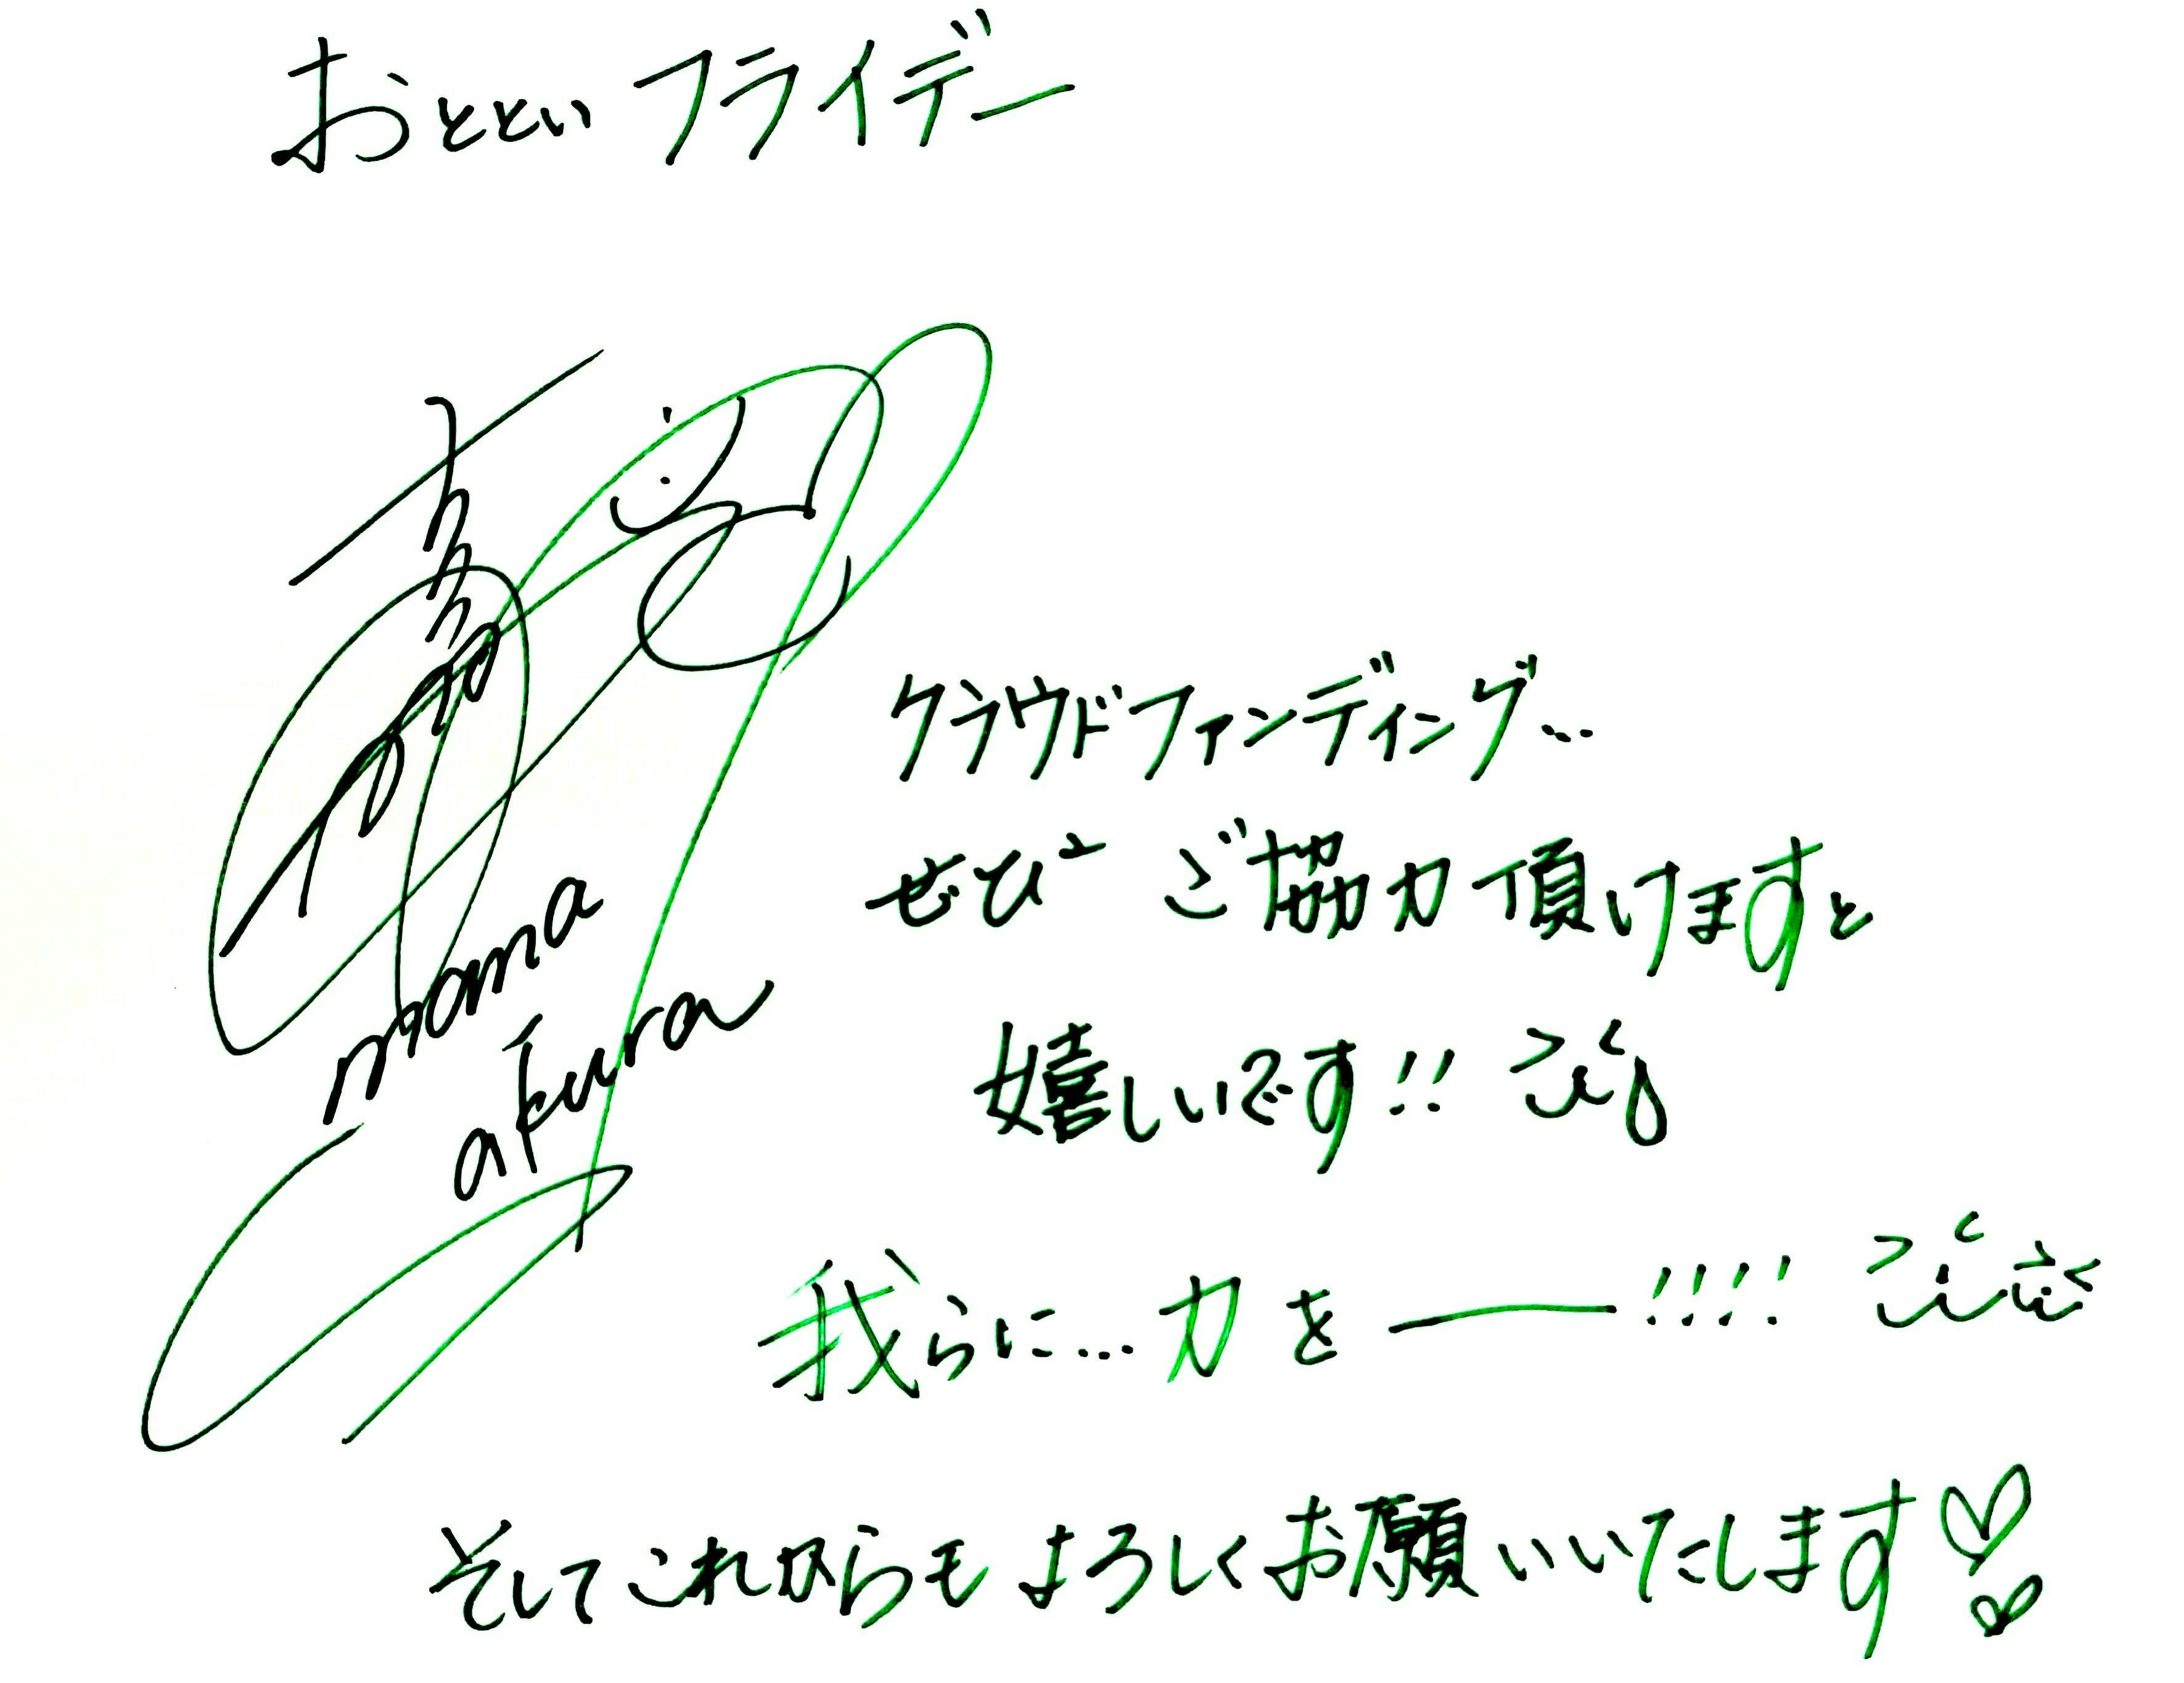 おとといフライデー
momona
akura
クラウドファンディング…
ぜひ ご協力頂けますと
嬉しいです!!
我らに…力を――!!!!
そしてこれからもよろしくお願いいたします♡